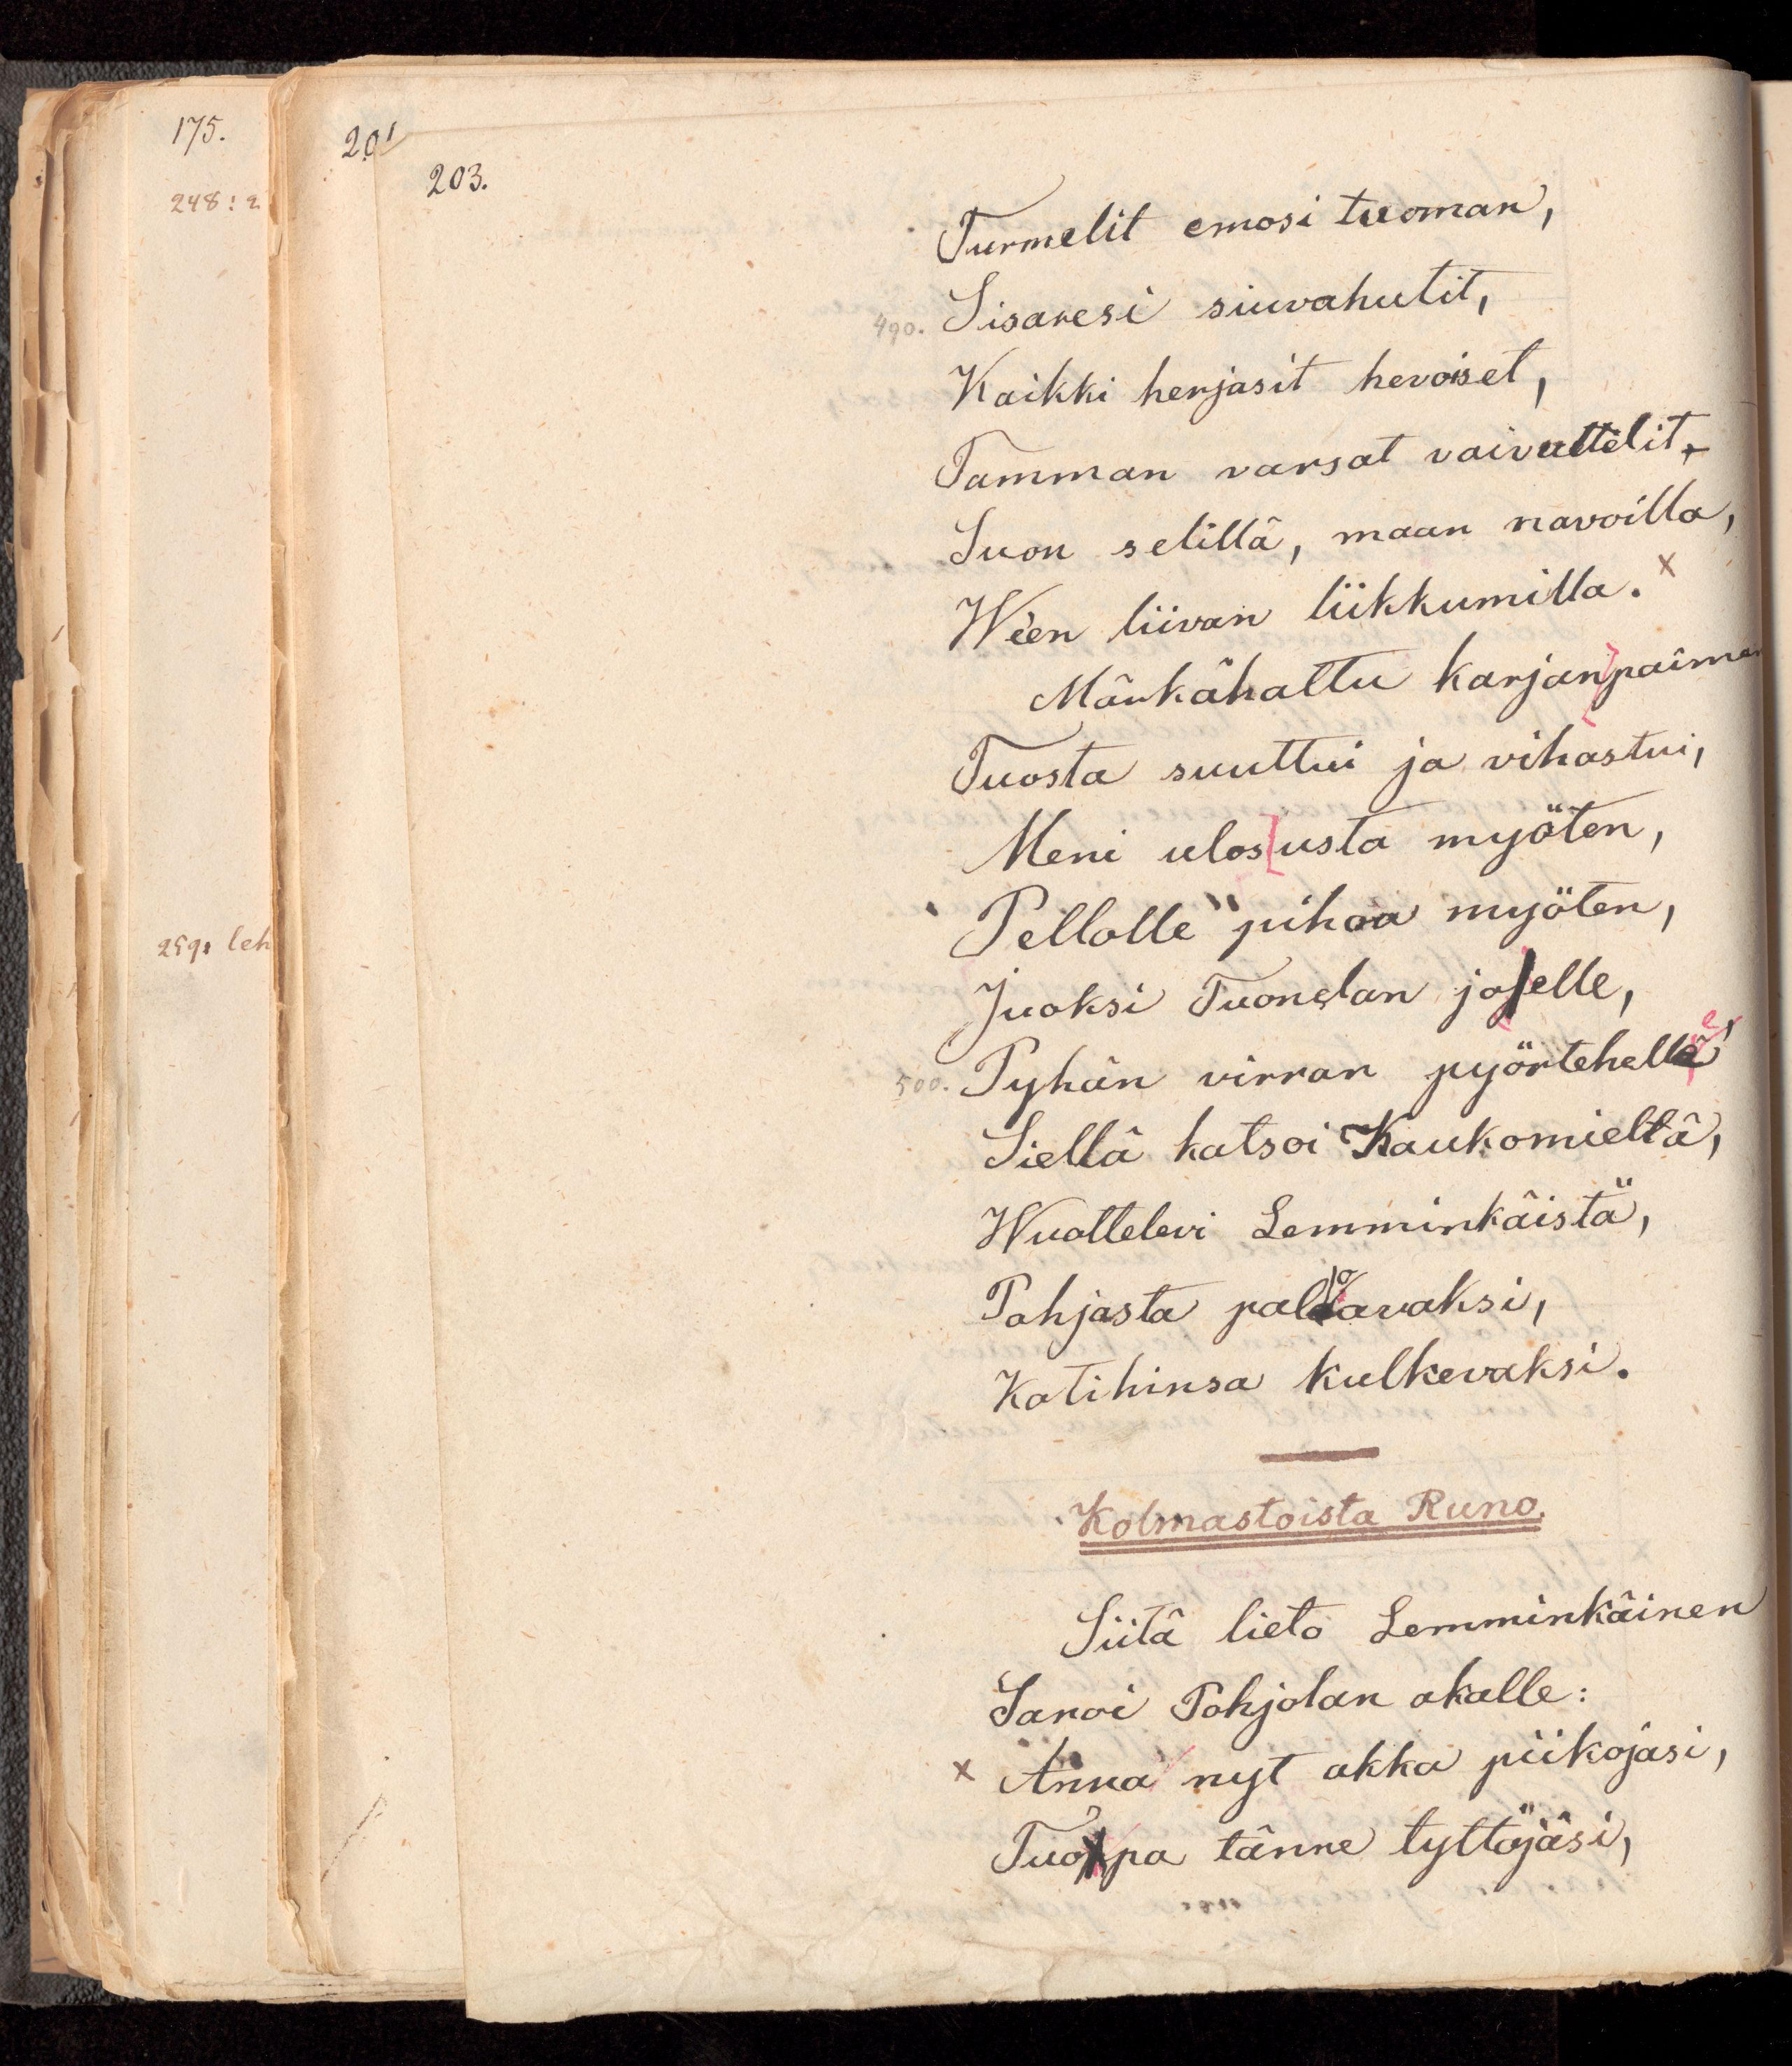 175.
248: 2
259: leh
201
203.
Turmelit emosi tuoman,
490. Sisaresi siuvahutit,
Kaikki herjasit hevoiset,
Tamman varsat vaivuttelit,
Suon selillä, maan navoilla,
Ween liivan liikkumilla. x
Märkähattu karjan paimen
Tuosta suuttui ja vihastui,
Meni ulos usta myöten,
Pellolle pihoa myöten,
Juoksi Tuonelan joelle,
500. Pyhän virran pyörtehelle,
Siellä katsoi Kaukomieltä,
Wuottelevi Lemminkäistä,
Pohjasta paloavaksi,
Kotihinsa kulkevaksi.
Kolmastoista Runo.
Siitä lieto Lemminkäinen
Sanoi Pohjolan akalle:
x Anna nyt akka piikojasi,
Tuopa tänne tyttöjäsi,